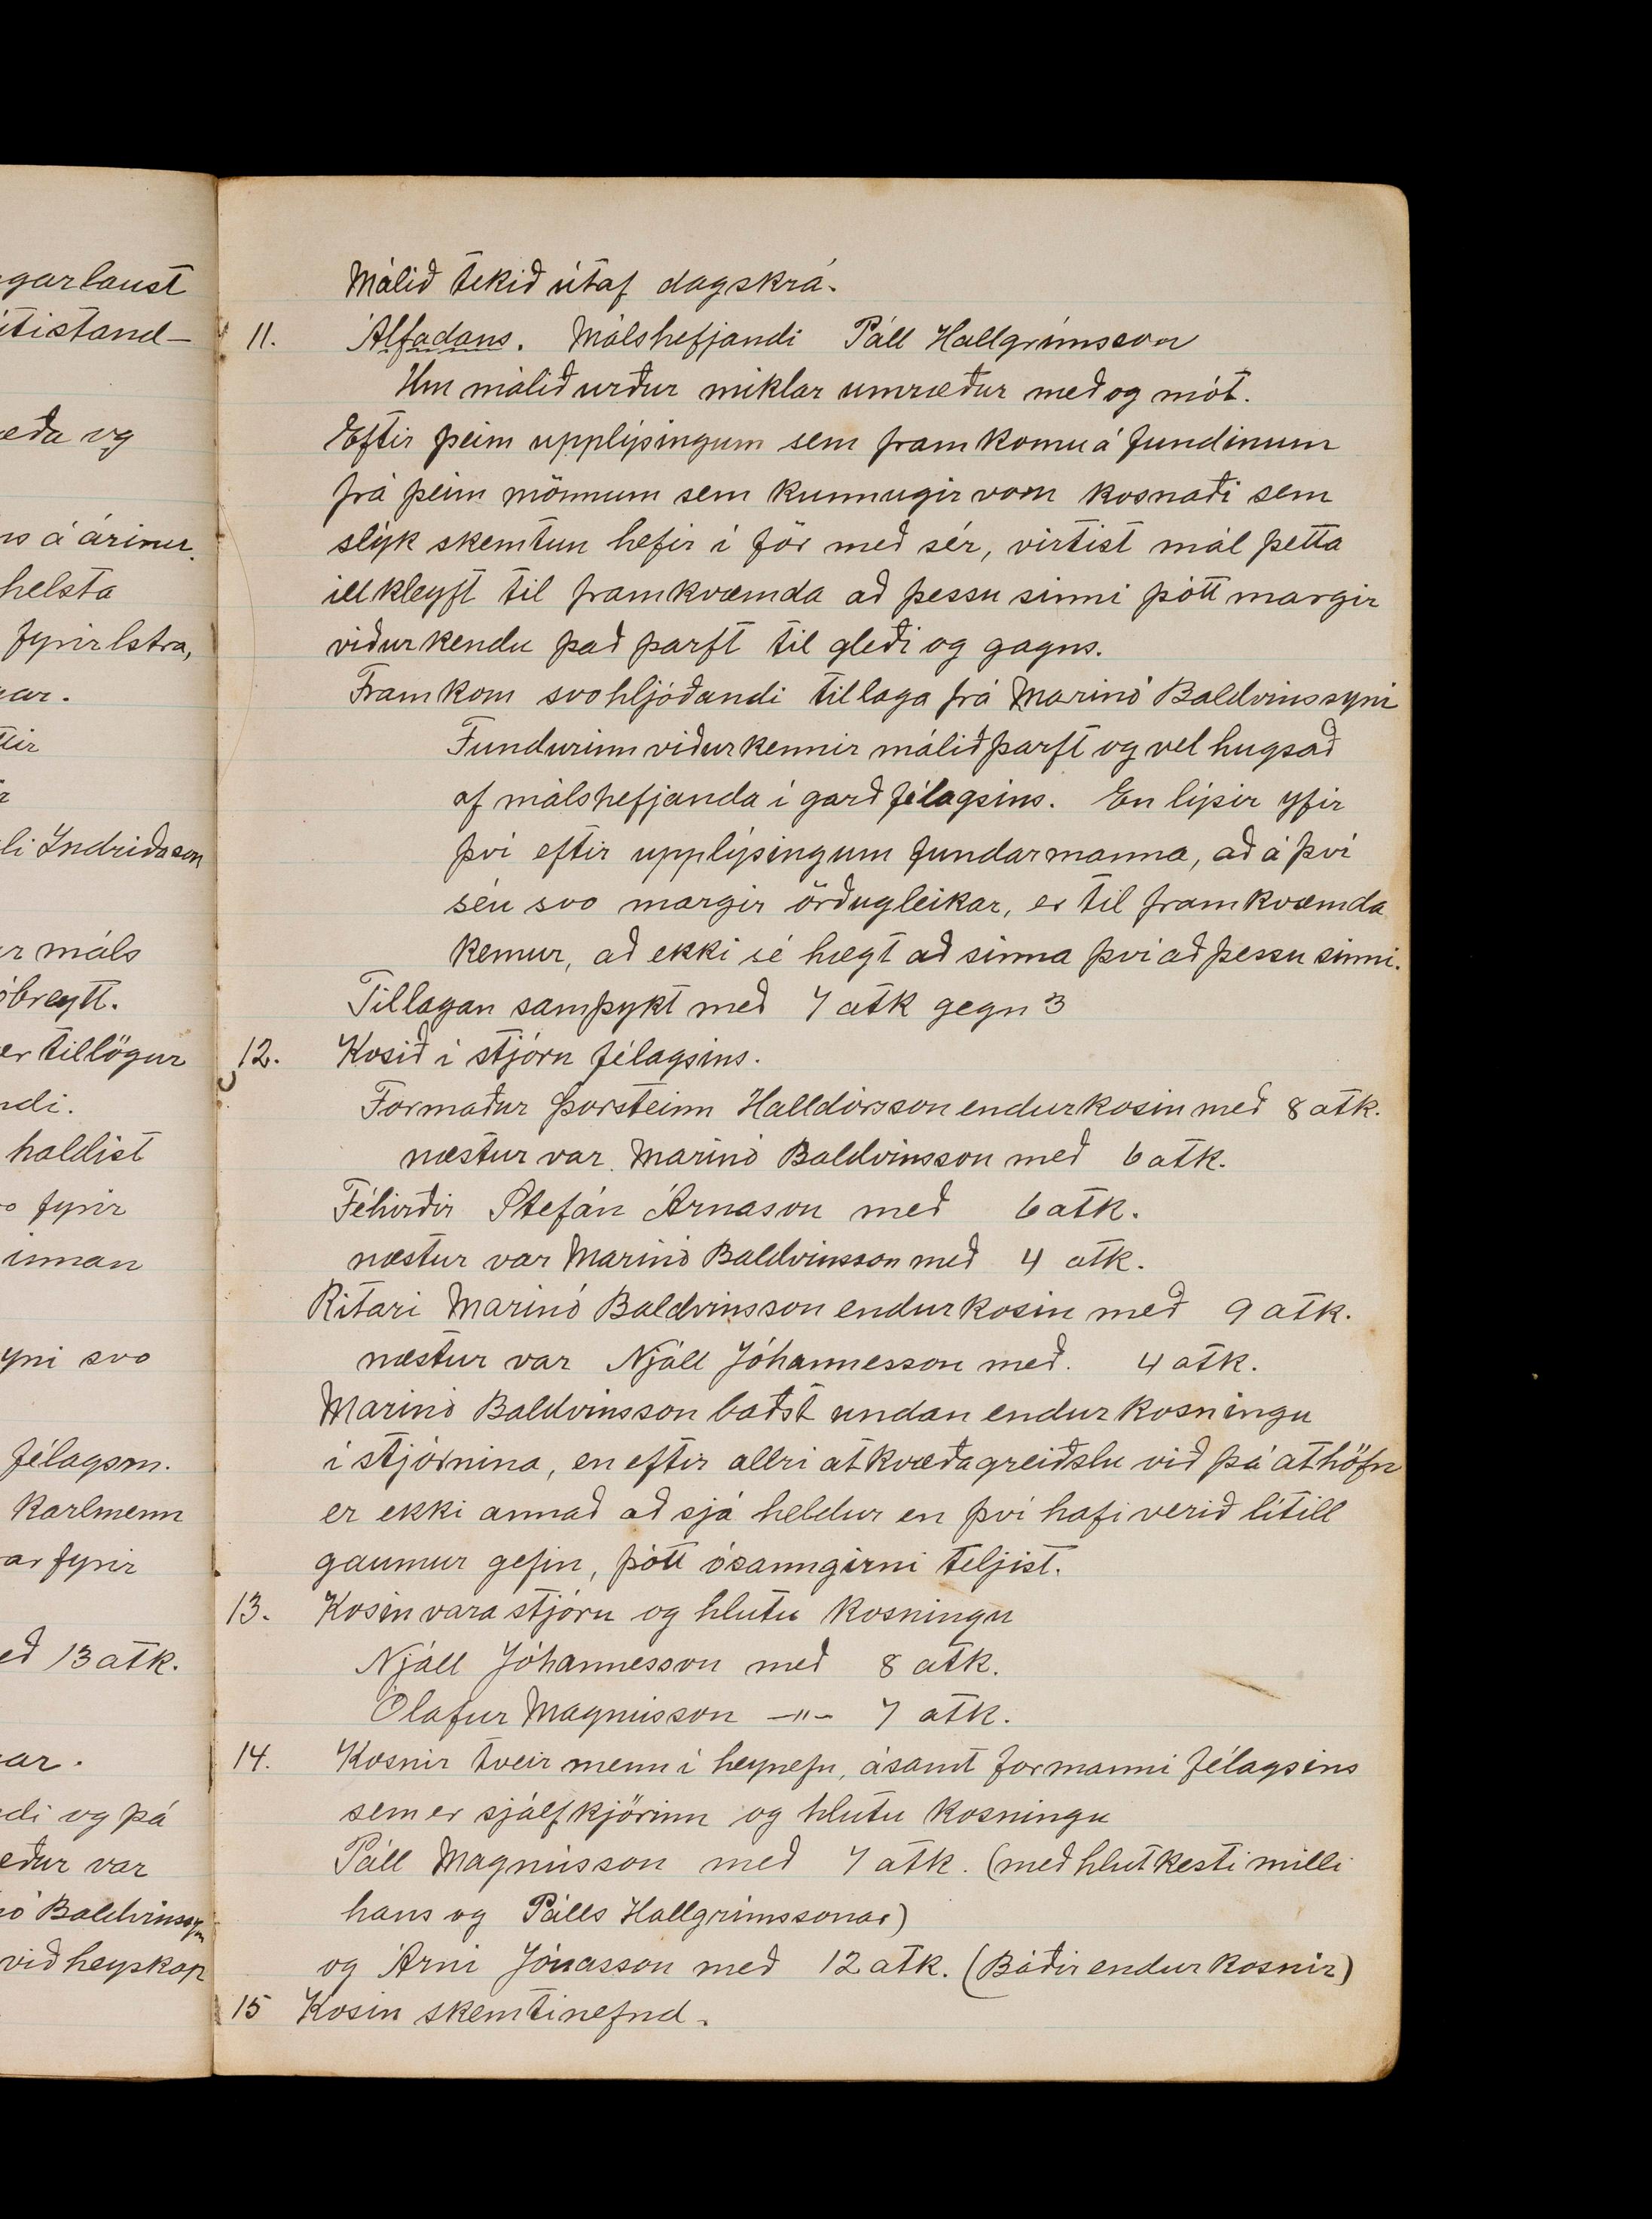 garlaust
útistand-
æða og
ns á árinu.
helsta
fyrirlstra,
ar.
ttir
li Indriðason
ur máls
óbreytt.
er tillögur
ndi.
haldist
fyrir
innan
yni svo
félagsm.
Karlmenn
ar fyrir
eð 13 atk.
ar.
di og þá
eður var
nó Baldvinssyn
við heyskap
Málið tekið útaf dagskrá.
11. Álfadans. Málshefjandi Páll Hallgrímsson
Um málið urður miklar umræður með og mót.
Eftir þeim upplýsingum sem framkomu á fundinum
frá þeim mönnum sem kunnugir voru kosnaði sem
slýk skemtun hefir í för með sér, virtist mál þetta
illkleyft til framkvæmda að þessu sinni þótt margir
viðurkendu það þarft til gleði og gagns.
Framkom svohljóðandi tillaga frá Marinó Baldvinssyni
Fundurinn viðurkennir málið þarft og vel hugsað
af málshefjanda í garð félagsins. En lýsir yfir
því eftir upplýsingum fundarmanna, að á því
séu svo margir örðugleikar, er til framkvæmda
kemur, að ekki sé hægt að sinna því að þessu sinni.
Tillagan samþykt með 7 atk gegn 3
12. Kosið í stjórn félagsins.
Formaður Þorsteinn Halldórsson endurkosin með 8 atk.
næstur var Marinó Baldvinsson með 6 atk.
Féhirðir Stefán Árnason með 6 atk.
næstur var Marinó Baldvinsson með 4 atk.
Ritari Marinó Baldvinsson endurkosin með 9 atk.
næstur var Njáll Jóhannesson með. 4 atk.
Marinó Baldvinsson baðst undan endurkosningu
í stjórnina, en eftir allri atkvæðagreiðslu við þá athöfn
er ekki annað að sjá heldur en því hafi verið lítill
gaumur gefin, þótt ósanngirni teljist.
13. Kosin varastjórn og hlutu kosningu
Njáll Jóhannesson með 8 atk.
Ólafur Magnússon -"- 7 atk.
14. Kosnir tveir menn í heynefn, ásamt formanni félagsins
sem er sjálfkjörinn og hlutu kosningu
Páll Magnússon með 7 atk. (með hlutkesti milli
hans og Pálls Hallgrímssonar)
og Árni Jónasson með 12 atk. (Báðir endurkosnir)
15 Kosin skemtinefnd.